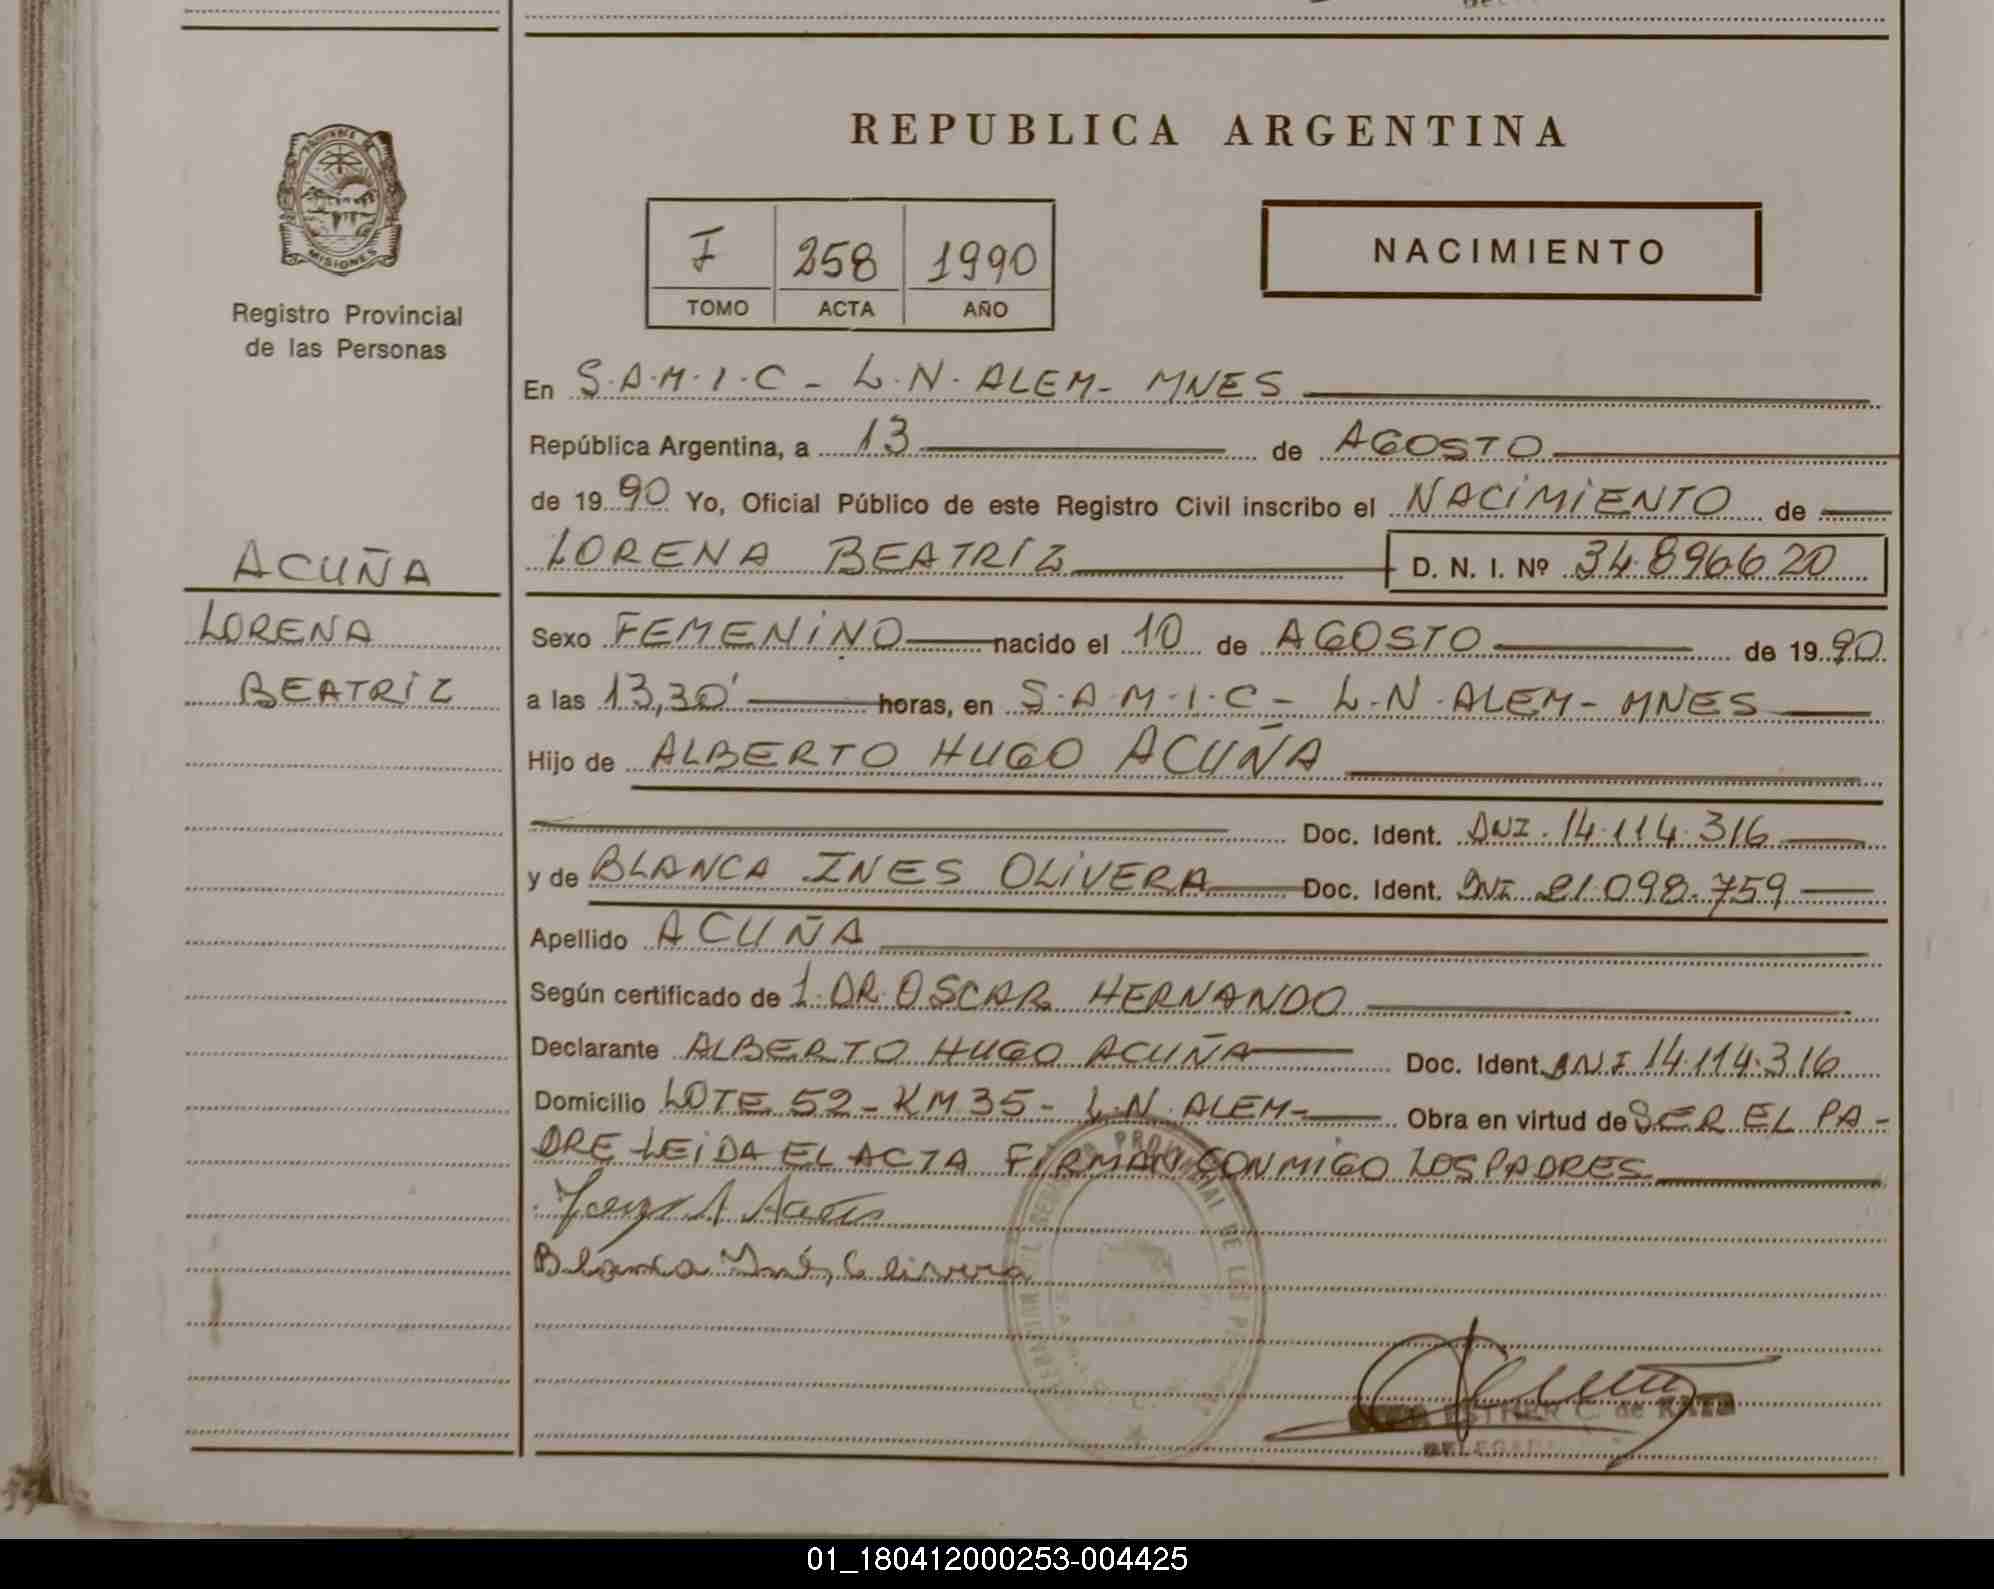 REPUBLICA ARGENTINA
MISIONES
Registro Provincial
de las Personas
F 258 1990
TOMO ACTA AÑO
NACIMIENTO
En S.A.M.I.C - L.N. ALEM - MNES
República Argentina, a 13 de AGOSTO
de 1990 Yo, Oficial Público de este Registro Civil inscribo el NACIMIENTO de
LORENA BEATRIZ D. N. I. Nº 34.896620
ACUÑA
LORENA
BEATRIZ
Sexo FEMENINO nacido el 10 de AGOSTO de 1990
a las 13,30' horas, en S.A.M.I.C - L.N. ALEM - MNES
Hijo de ALBERTO HUGO ACUÑA
Doc. Ident. DNI. 14.114.316
y de BLANCA INES OLIVERA Doc. Ident. DNI. 21.098.759
Apellido ACUÑA
Según certificado de 1. DR. OSCAR HERNANDO
Declarante ALBERTO HUGO ACUÑA Doc. Ident. DNI 14.114.316
Domicilio LOTE 52 - KM 35 - L.N. ALEM - Obra en virtud de SER EL PA-
DRE LEIDA EL ACTA FIRMAN CONMIGO LOS PADRES
Blanca Inés Olivera
PROVINCIAL DE LAS
ESTHER C. de
DELEGADA
01_180412000253-004425